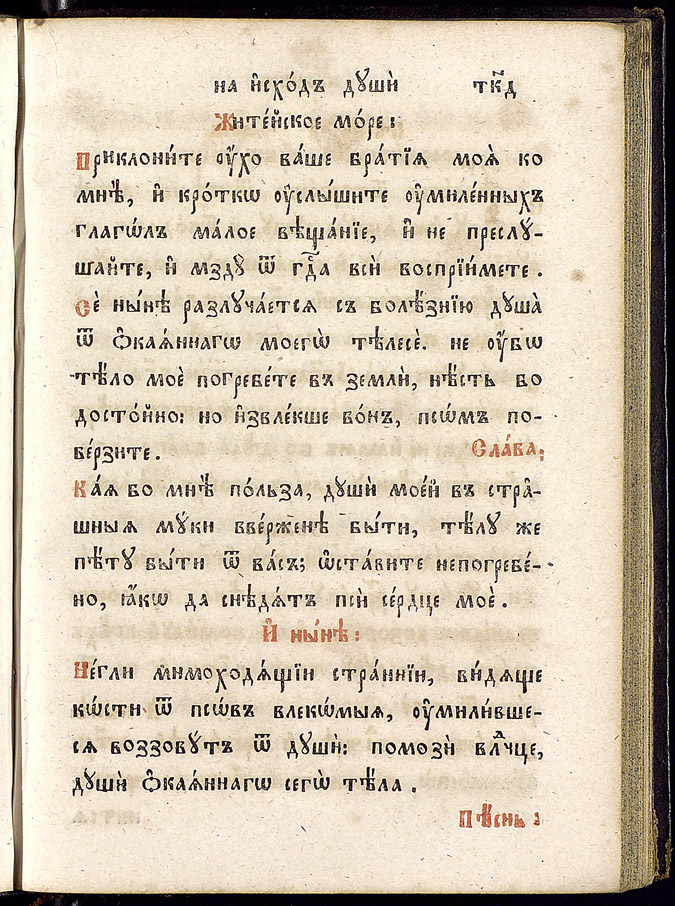 на и҆схо́дъ души̂ тк҃д
Жите́йское мо́ре:
Приклони́те ᲂу҆́хо ва́ше бра́тїѧ моѧ̀ ко
мнѣ̀, и҆ кро́ткѡ ᲂу҆слы́шите ᲂу҆миле́нныхъ
глагѡ́лъ ма́лое вѣща́нїе, и҆ не преслꙋ́-
шайте, и҆ мздꙋ̀ ѿ гдⷭ҇а всѝ воспрїи́мете.
Сѐ ны́нѣ разлꙋча́етсѧ съ болѣ́знїю дꙋша̀
ѿ ѻ҆каѧ́ннагѡ моегѡ̀ тѣлесѐ. не ᲂу҆́бѡ
тѣ́ло моѐ погребе́те въ землѝ, нѣ́сть бо
досто́йно: но и҆звле́кше во́нъ, псѡ́мъ по-
ве́рзите. Сла́ва;
Ка́ѧ бо мнѣ̀ по́льза, дꙋшѝ мое́й въ стра́-
шныѧ мꙋ́ки вве́рженѣ бы́ти, тѣ́лꙋ же
пѣ́тꙋ бы́ти ѿ ва́съ; ѡ҆ста́вите непогребе́-
но, ꙗ҆́кѡ да снѣдѧ́тъ псѝ се́рдце моѐ.
И҆ ны́нѣ:
Не́гли мимоходѧ́щїи стра́ннїи, ви́дѧще
кѡ́сти ѿ псѡ́въ влекѡ́мыѧ, ᲂу҆мили́вше-
сѧ воззовꙋ́тъ ѿ дꙋшѝ: помозѝ влⷣчце,
дꙋшѝ ѻ҆каѧ́ннагѡ сегѡ̀ тѣ́ла.
Пѣ́снь: